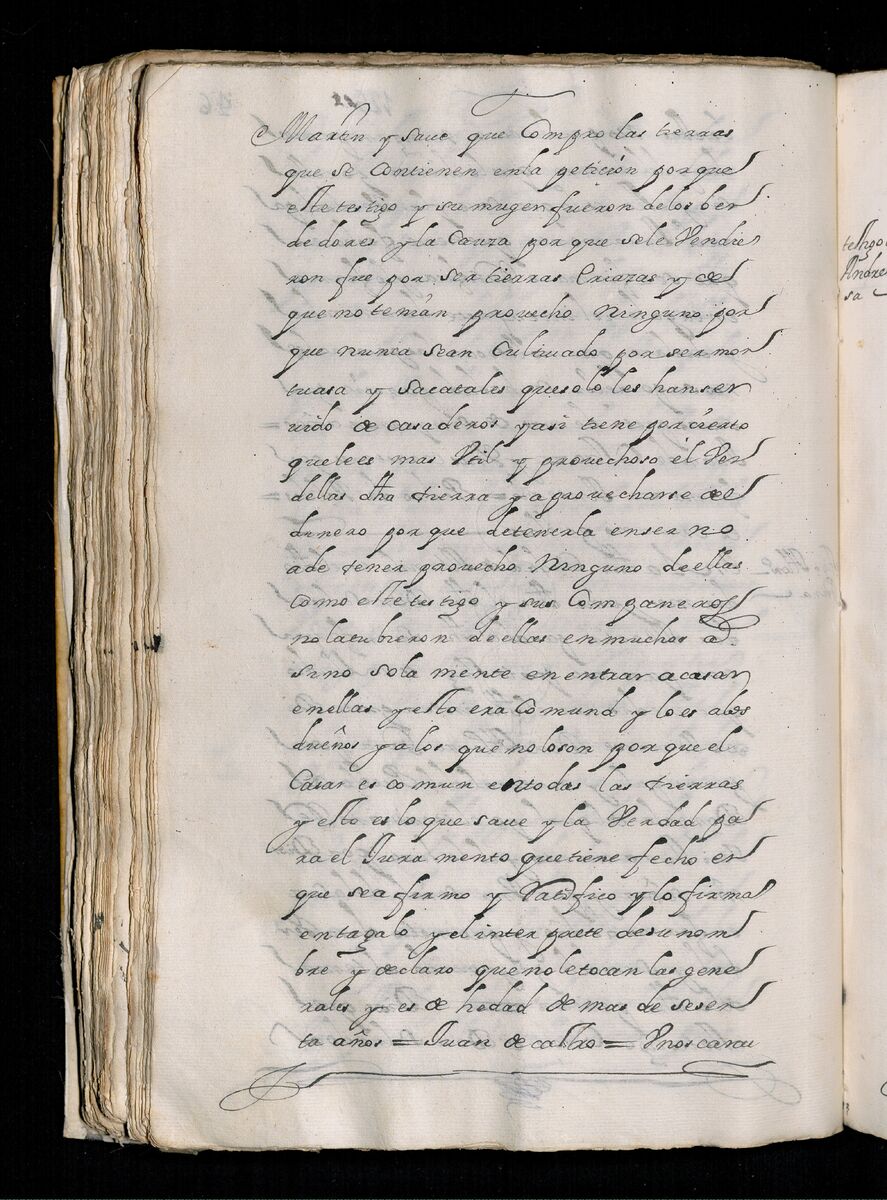 Martin y saue que Compro las tierras
que se Contienen en la peticion porque
este testigo y su muger fueron delos ben
dedores y la Cauza por que sele Vendie
ron fue por ser tierras Eriazas y de
que no tenian provecho Ninguno por
que nunca sean Cultiuado por ser mon
tuasa y sacatales que solo les han ser
uido de casaderos y asi tiene por cierto
que le es mas Vtil y provechoso el Ven
dellas dha tierra y aprovecharse del
dinero por que detenerla en ser no
a de tener provecho Ninguno de ellas
Como este testigo y sus Companeros
no la tubieron de ellas en muchos as.
sino sola mente en entrar a casar
en ellas y esto era Comund y lo es alos
dueños y a los que no lo son por que el
Casar es co mun en todas las tierras
y esto es lo que saue y la Verdad pa
ra el Jura mento que tiene fecho en
que se afirmo y Ratifico y lo firma
en tagalo y el inter prete de su nom
bre y declaro que no le tocan las gene
rales y es de hedad de mas de sesen
ta años = Juan de castro = Vnos carac
testigo
Andre
sa